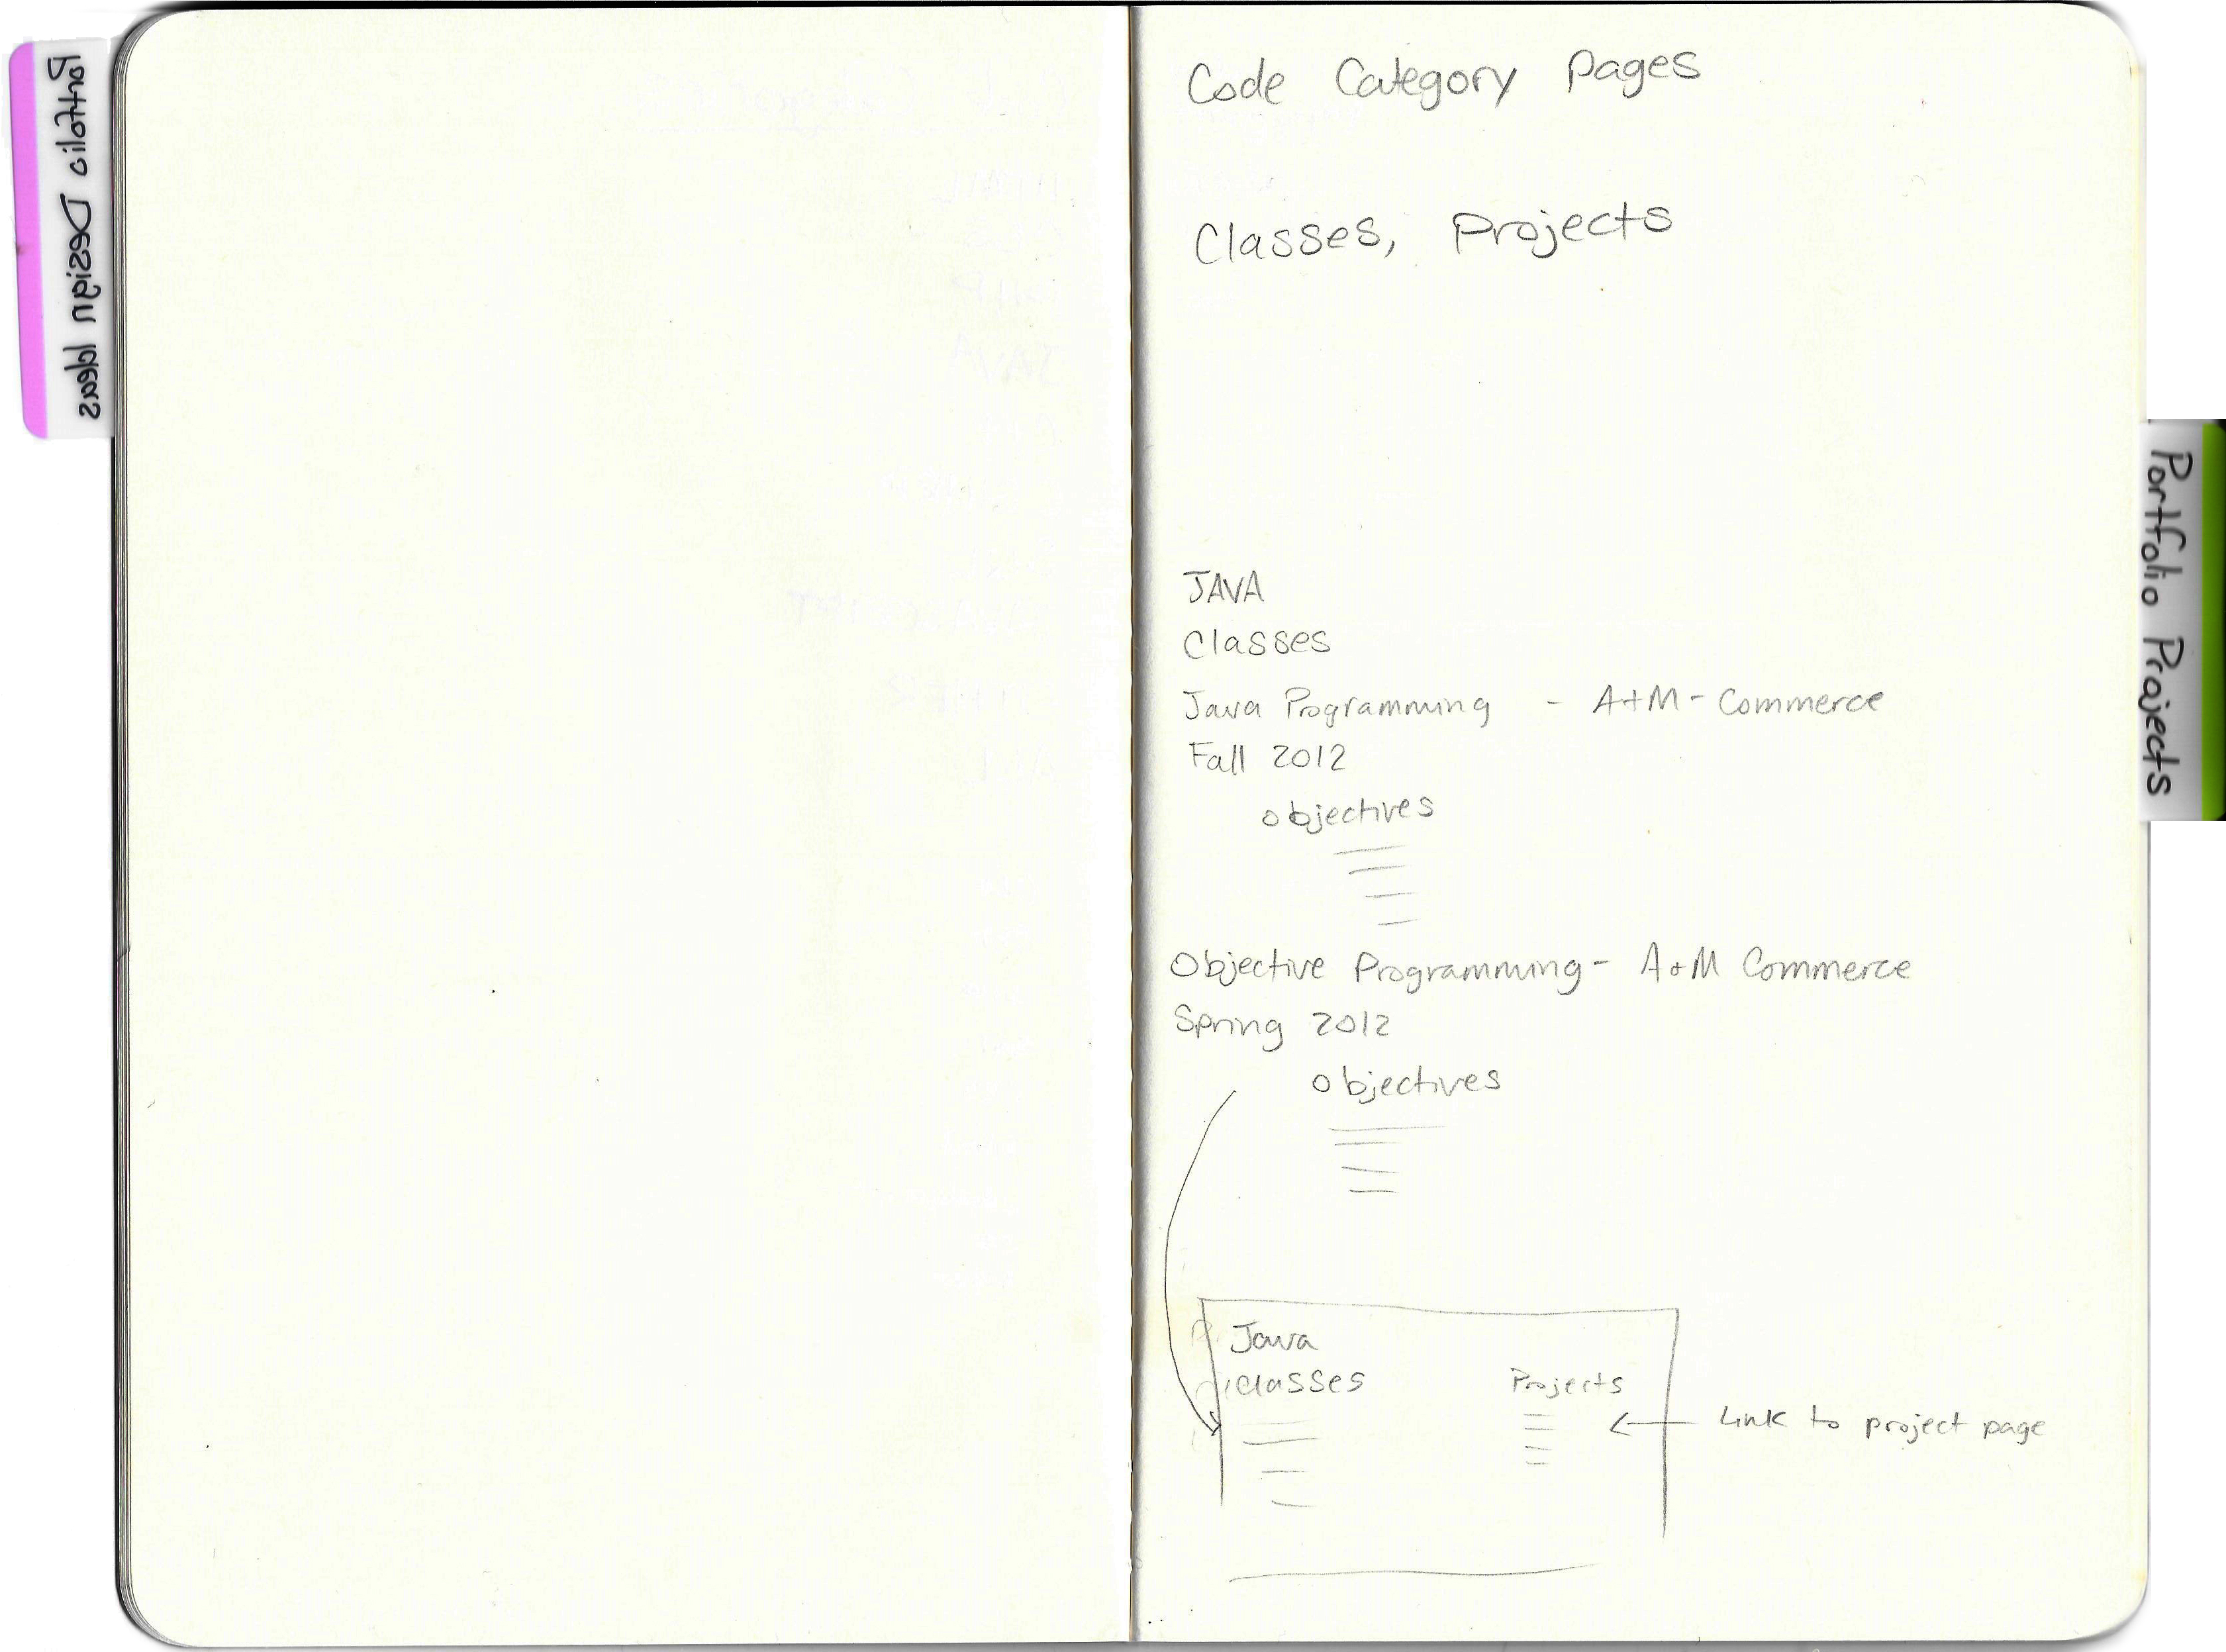 Portfolio Design Ideas
Code Category Pages
Classes, Projects
JAVA
Classes
Java Programming - A+M - Commerce
Fall 2012
objectives
Objective Programming - A+M Commerce
Spring 2012
objectives
Java
classes Projects
Link to project page
Portfolio Projects